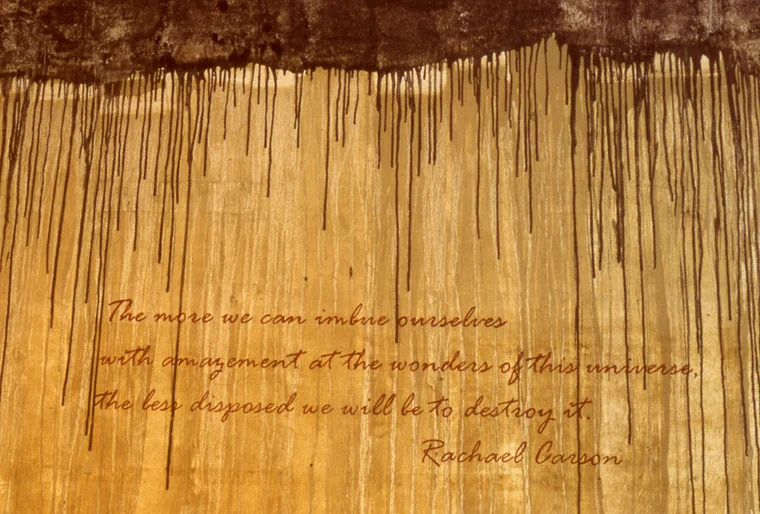 The more we can imbue ourselves
with amazement at the wonders of this universe,
the less disposed we will be to destroy it.
Rachael Carson